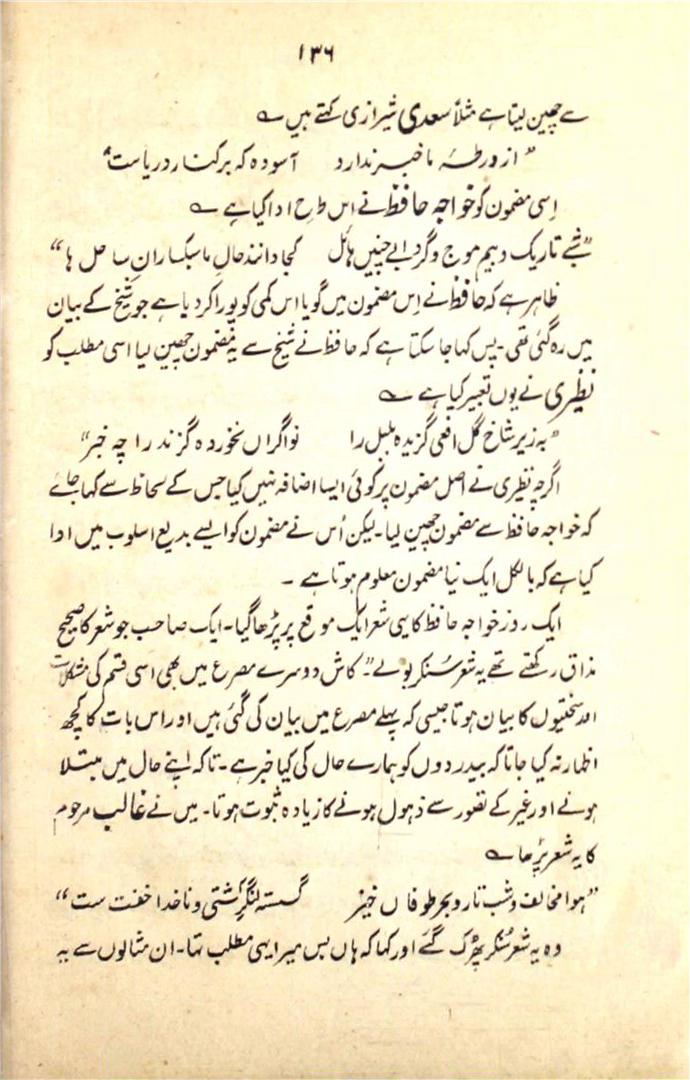 ۱۳۶
سے چھین لیتا ہے مثلاً سعدی شیرازی کہتے ہیں ؎
"از ورطہٴ ما خبر ندارد آسودہ کہ برکنار دریاست"
اِسی مضمون کو خواجہ حافظؔ نے اس طرح ادا کیا ہے ؎
"شبے تاریک و بیم موج و گردابے چنیں ہائل کجا دانند حالِ ما سبکسارانِ ساحل ہا"
ظاہر ہے کہ حافظؔ نے اِس مضمون میں گویا اس کمی کو پورا کردیا ہے جو شیخ کے بیان
میں رہ گئی تھی۔ پس کہا جا سکتا ہے کہ حافظ نے شیخ سے یہ مضمون چھین لیا اسی مطلب کو
نظیری نے یوں تعبیر کیا ہے ؎
"بہ زیر شاخ گل افعی گزیدہ بلبل را نواگراں نخوردہ گزند را چہ خبر"
اگرچہ نظیری نے اصل مضمون پر کوئی ایسا اضافہ نہیں کیا جس کے لحاظ سے کہا جائے
کہ خواجہ حافظ سے مضمون چھین لیا۔ لیکن اُس نے مضمون کو ایسے بدیع اسلوب میں ادا
کیا ہے کہ بالکل ایک نیا مضمون معلوم ہوتا ہے ۔
ایک روز خواجہ حافظ کا یہی شعر ایک موقع پر پڑھا گیا۔ ایک صاحب جو شعر کا صحیح
مذاق رکھتے تھے یہ شعر سُنکر بولے "۔ کاش دوسرے مصرع میں بھی اسی قسم کی مشکلات
اور سختیوں کا بیان ہوتا جیسی کہ پہلے مصرع میں بیان کی گئی ہیں اور اس بات کا کچھ
اظہار نہ کیا جاتا کہ بیدردوں کو ہمارے حال کی کیا خبر ہے۔ تاکہ اپنے حال میں مبتلا
ہونے اور غیر کے تصور سے ذہول ہونے کا زیادہ ثبوت ہوتا۔ میں نے غالب مرحوم
کا یہ شعر پڑھا ؎
"ہوا مخالف و شب تار و بحر طوفاں خیز گسستہ لنگر کشتی و ناخدا خفت ست"
وہ یہ شعر سُنکر پھڑک گئے اور کہا کہ ہاں بس میرا یہی مطلب تھا۔ ان مثالوں سے یہ